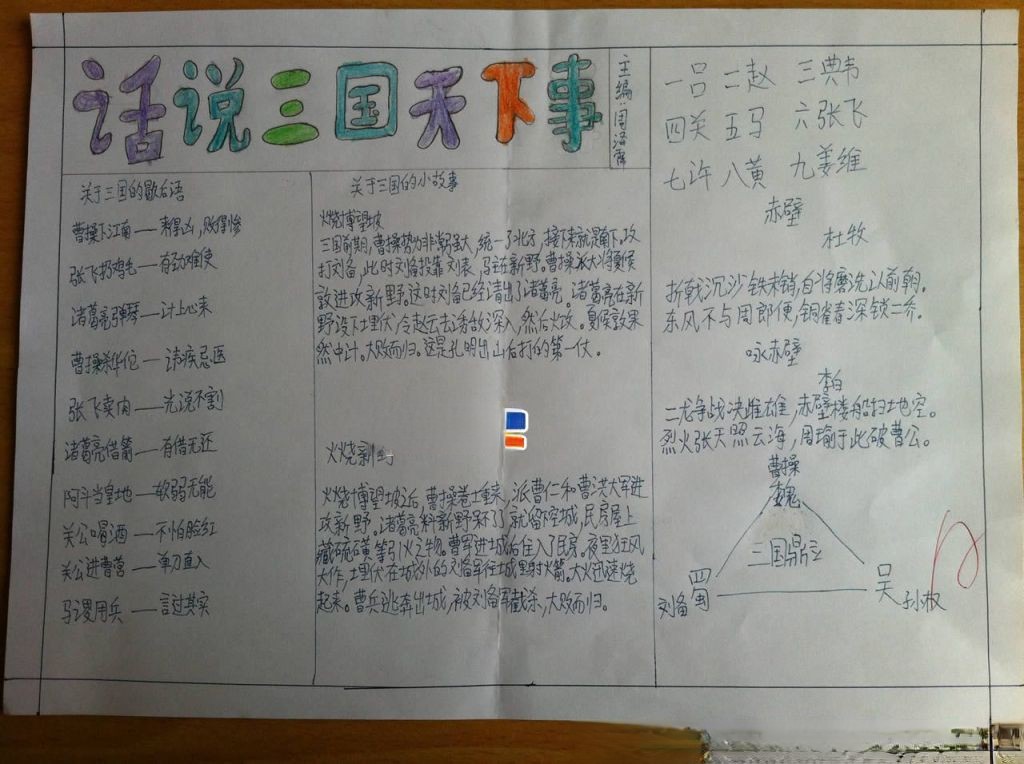 话说三国天下事
主编:周洛霈
关于三国的歇后语
曹操下江南——来得凶,败得惨
张飞扔鸡毛——有劲难使
诸葛亮弹琴——计上心来
曹操杀华佗——讳疾忌医
张飞卖肉——光说不割
诸葛亮借箭——有借无还
阿斗当皇地——软弱无能
关公喝酒——不怕脸红
关公进曹营——单刀直入
马谡用兵——言过其实
关于三国的小故事
火烧博望坡
三国前期,曹操势力非常强大,统一了北方,接下来就是南下。攻
打刘备,此时刘备投靠刘表,驻在新野。曹操派大将夏侯
敦进攻新野。这时刘备已经请出了诸葛亮。诸葛亮在新
野设下埋伏,令赵云去诱敌深入,然后火攻。夏侯敦果
然中计。大败而归。这是孔明出山后打的第一仗。
火烧新野
火烧博望坡之后,曹操卷土重来,派曹仁和曹洪大军进
攻新野。诸葛亮料新野保不了,就留下空城,民房屋上
藏硫磺等引火之物。曹军进城后住入了民房。夜里狂风
大作,埋伏在城外的刘备军往城里射火箭。大火迅速烧
起来。曹兵逃奔出城,被刘备军截杀,大败而归。
一吕 二赵 三典韦
四关 五马 六张飞
七许 八黄 九姜维
赤壁
杜牧
折戟沉沙铁未销,自将磨洗认前朝。
东风不与周郎便,铜雀春深锁二乔。
咏赤壁
李白
二龙争战决雌雄,赤壁楼船扫地空。
烈火张天照云海,周瑜于此破曹公。
曹操
魏
三国鼎立
蜀
刘备
吴
孙权